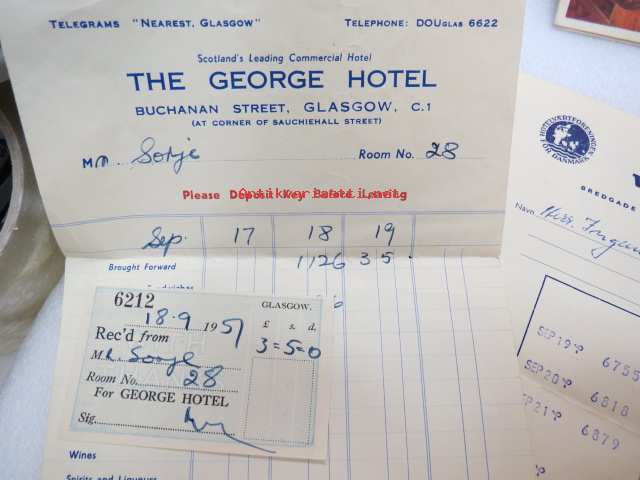 TELEGRAMS "NEAREST, GLASGOW" TELEPHONE: DOUGLAS 6622
Scotland's Leading Commercial Hotel
THE GEORGE HOTEL
BUCHANAN STREET, GLASGOW, C.1
(AT CORNER OF SAUCHIEHALL STREET)
Mr. Sorje Room No. 28
Please Deposit Key before Leaving
Antiikkiraati.net
Sep. 17 18 19
Brought Forward 1126 3 5
6212 GLASGOW.
18.9 1951 £ s. d.
Rec'd from 3=5=0
Mr. Sorje
Room No. 28
For GEORGE HOTEL
Sig.
Wines
Spirits and Liqueurs
HOTELVÆRTFORENINGEN
FOR DANMARK
BREDGADE
Navn
SEP 19 6755
SEP 20 6818
SEP 21 6879